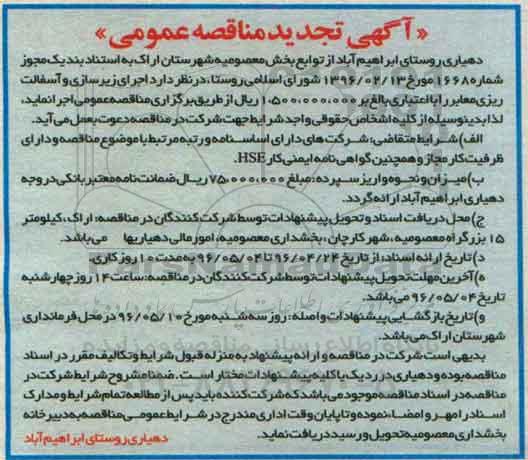 «آگهی تجدید مناقصه عمومی»
دهیاری روستای ابراهیم آباد از توابع بخش معصومیه شهرستان اراک به استناد بند یک مجوز
شماره ۱۶۶۸ مورخ ۱۳۹۶/۰۲/۱۳ شورای اسلامی روستا، در نظر دارد اجرای زیرسازی و آسفالت
ریزی معابر را با اعتباری بالغ بر ۱،۵۰۰،۰۰۰،۰۰۰ ریال از طریق برگزاری مناقصه عمومی اجرا نماید،
لذا بدینوسیله از کلیه اشخاص حقوقی واجد شرایط جهت شرکت در مناقصه دعوت بعمل می آید.
الف) شرایط متقاضی: شرکت های دارای اساسنامه و رتبه مرتبط با موضوع مناقصه و دارای
ظرفیت کار مجاز و همچنین گواهی نامه ایمنی کار HSE.
ب) میزان و نحوه واریز سپرده: مبلغ ۷۵،۰۰۰،۰۰۰ ریال ضمانت نامه معتبر بانکی در وجه
دهیاری ابراهیم آباد ارائه گردد.
ج) محل دریافت اسناد و تحویل پیشنهادات توسط شرکت کنندگان در مناقصه: اراک، کیلومتر
۱۵ بزرگراه معصومیه، شهر کارچان، بخشداری معصومیه، امور مالی دهیاریها می باشد.
د) تاریخ ارائه اسناد: از تاریخ ۹۶/۰۴/۲۴ تا ۹۶/۰۵/۰۴ به مدت ۱۰ روز کاری.
ه) آخرین مهلت تحویل پیشنهادات توسط شرکت کنندگان در مناقصه: ساعت ۱۴ روز چهارشنبه
تاریخ ۹۶/۰۵/۰۴ می باشد.
و) تاریخ بازگشایی پیشنهادات واصله: روز سه شنبه مورخ ۹۶/۰۵/۱۰ در محل فرمانداری
شهرستان اراک می باشد.
بدیهی است شرکت در مناقصه و ارائه پیشنهاد به منزله قبول شرایط و تکالیف مقرر در اسناد
مناقصه بوده و دهیاری در رد یک یا کلیه پیشنهادات مختار است. ضمنا مشروح شرایط شرکت در
مناقصه در اسناد مناقصه موجود می باشد که شرکت کننده باید پس از مطالعه تمام شرایط و مدارک
اسناد را مهر و امضاء نموده و تا پایان وقت اداری مندرج در شرایط عمومی مناقصه به دبیرخانه
بخشداری معصومیه تحویل و رسید دریافت نماید.
دهیاری روستای ابراهیم آباد